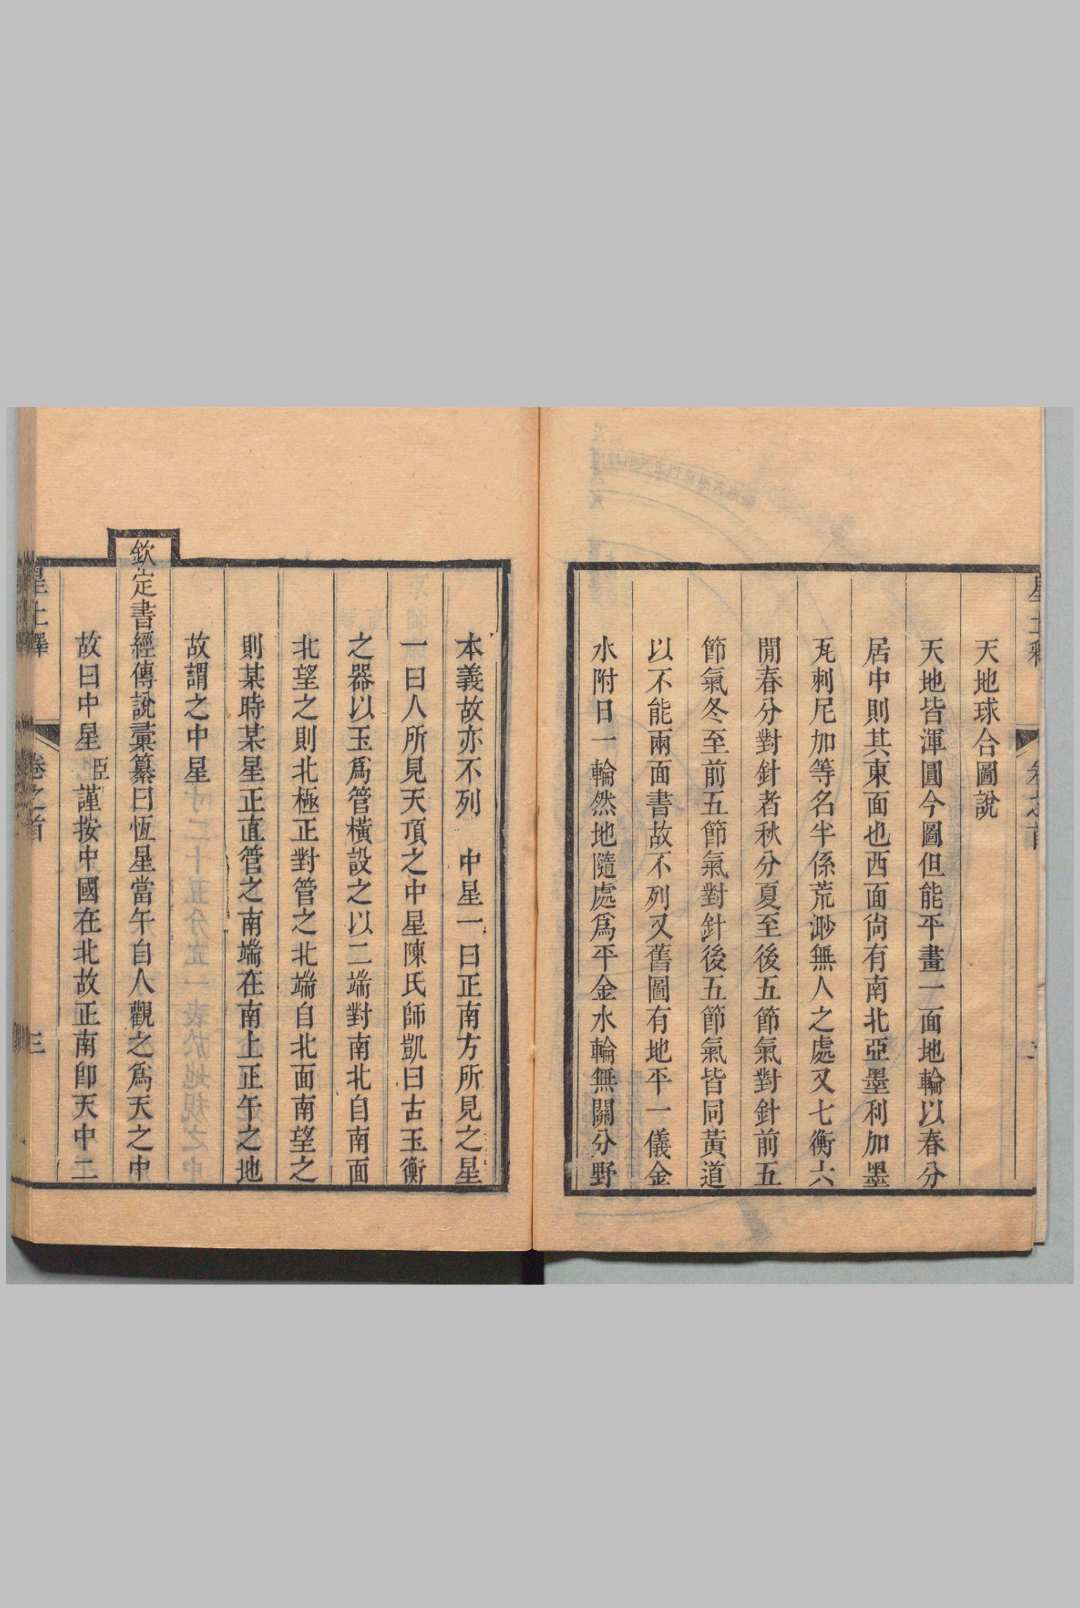 天地球合圖說
天地皆渾圓今圖但能平畫一面地輪以春分
居中則其東面也西面尙有南北亞墨利加墨
瓦刺尼加等名半係荒渺無人之處又七衡六
閒春分對針者秋分夏至後五節氣對針前五
節氣冬至前五節氣對針後五節氣皆同黃道
以不能兩面書故不列又舊圖有地平一儀金
水附日一輪然地隨處爲平金水輪無關分野
本義故亦不列 中星一曰正南方所見之星
一曰人所見天頂之中星陳氏師凱曰古玉衡
之器以玉爲管橫設之以二端對南北自南面
北望之則北極正對管之北端自北面南望之
則某時某星正直管之南端在南上正午之地
故謂之中星
欽定書經傳說彙纂曰恆星當午自人觀之爲天之中
故曰中星臣謹按中國在北故正南卽天中二
星土釋 卷之首 三